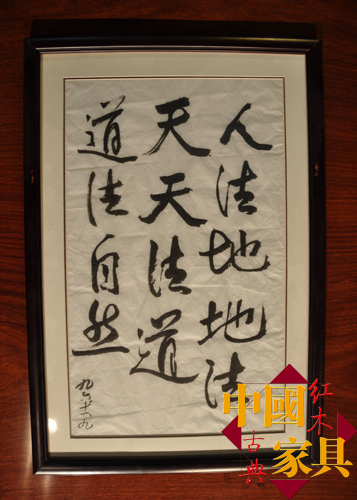 人法地地法
天天法道
道法自然
中國
红木
古典
家具